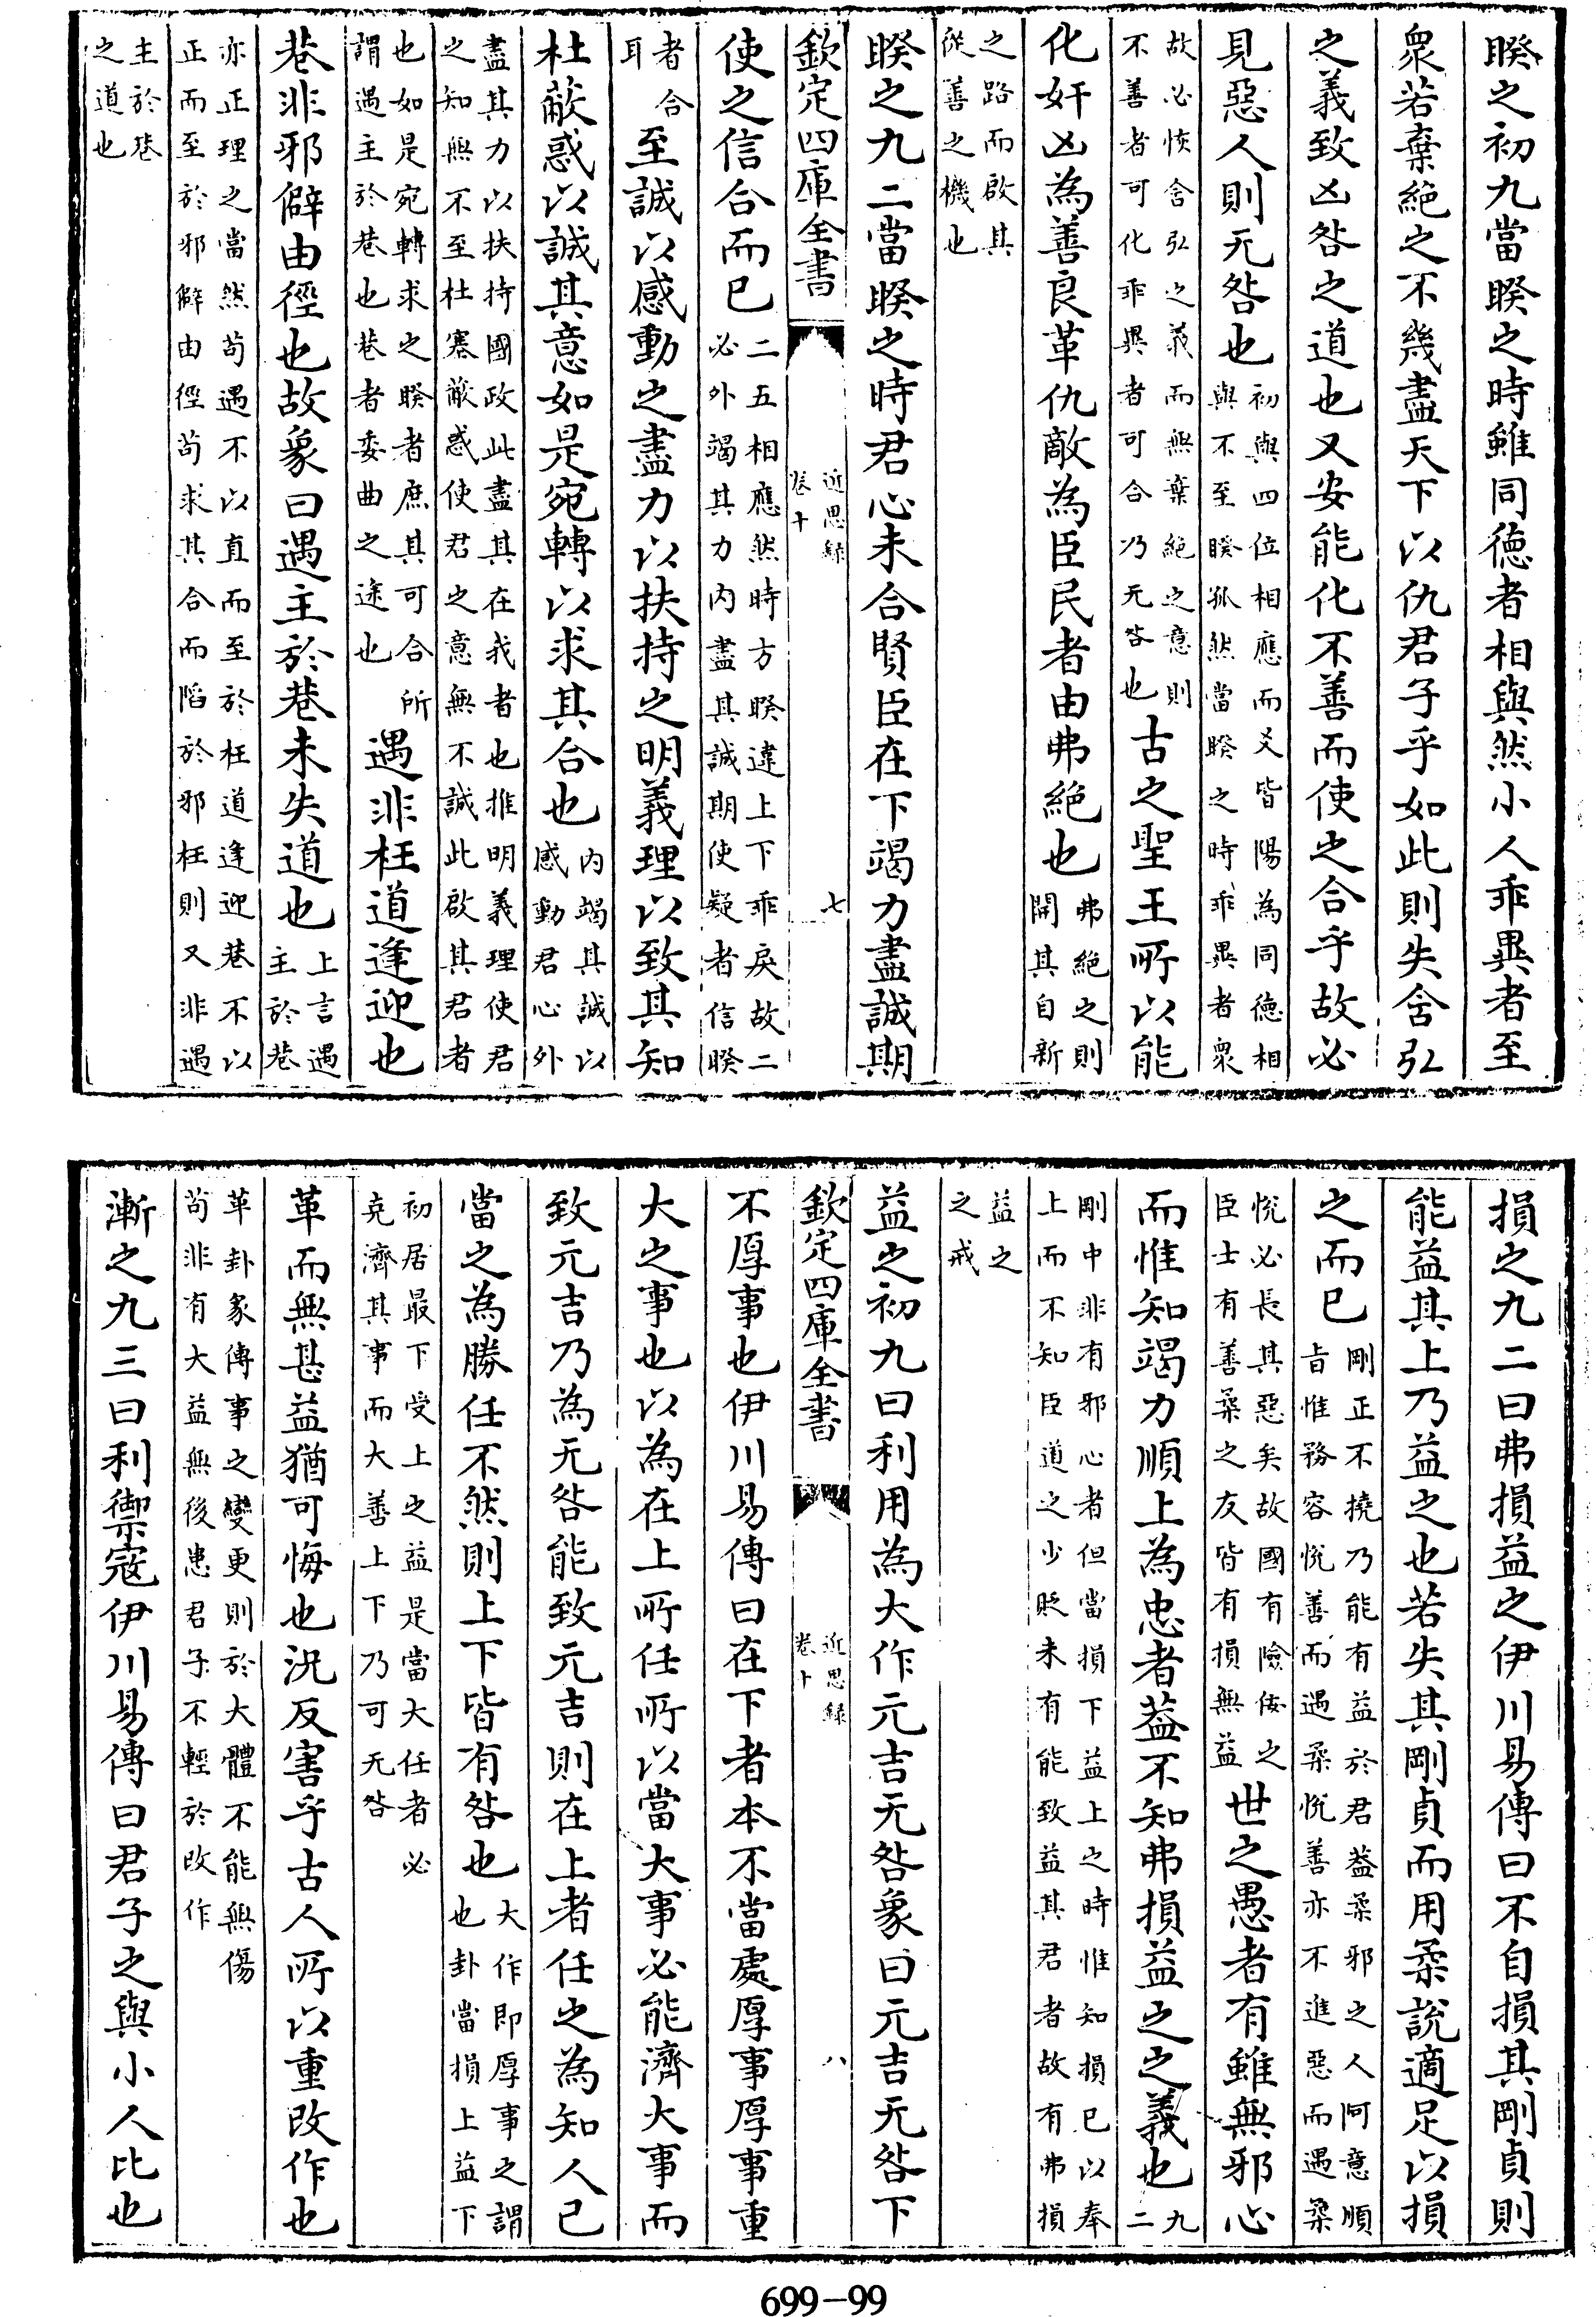 睽之初九當睽之時雖同德者相與然小人乖異者至
衆若棄絶之不幾盡天下以仇君子乎如此則失含弘
之義致凶咎之道也又安能化不善而使之合乎故必
見惡人則无咎也初與四位相應而又皆陽為同德相與不至睽孤然當睽之時乖異者衆
故必恢含弘之義而無棄絶之意則不善者可化乖異者可合乃无咎也古之聖王所以能
化奸凶為善良革仇敵為臣民者由弗絶也弗絶之則開其自新
之路而啟其從善之機也
睽之九二當睽之時君心未合賢臣在下竭力盡誠期
欽定四庫全書 近思録 卷十 七
使之信合而已二五相應然時方睽違上下乖戾故二必外竭其力内盡其誠期使疑者信睽
者合耳至誠以感動之盡力以扶持之明義理以致其知
杜蔽惑以誠其意如是宛轉以求其合也内竭其誠以感動君心外
盡其力以扶持國政此盡其在我者也推明義理使君之知無不至杜塞蔽惑使君之意無不誠此啟其君者
也如是宛轉求之睽者庶其可合所謂遇主於巷也巷者委曲之途也遇非枉道逢迎也
巷非邪僻由徑也故象曰遇主於巷未失道也上言遇主於巷
亦正理之當然苟遇不以直而至於枉道逢迎巷不以正而至於邪僻由徑苟求其合而陷於邪枉則又非遇
主於巷之道也
損之九二曰弗損益之伊川易傳曰不自損其剛貞則
能益其上乃益之也若失其剛貞而用柔說適足以損
之而已剛正不撓乃能有益於君葢柔邪之人阿意順旨惟務容悅善而遇柔悅善亦不進惡而遇柔
悅必長其惡矣故國有險佞之臣士有善柔之友皆有損無益世之愚者有雖無邪心
而惟知竭力順上為忠者葢不知弗損益之之義也九二
剛中非有邪心者但當損下益上之時惟知損已以奉上而不知臣道之少貶未有能致益其君者故有弗損
益之之戒
益之初九曰利用為大作元吉无咎象曰元吉无咎下
欽定四庫全書 近思録 卷十 八
不厚事也伊川易傳曰在下者本不當處厚事厚事重
大之事也以為在上所任所以當大事必能濟大事而
致元吉乃為无咎能致元吉則在上者任之為知人已
當之為勝任不然則上下皆有咎也大作即厚事之謂也卦當損上益下
初居最下受上之益是當大任者必克濟其事而大善上下乃可无咎
革而無甚益猶可悔也況反害乎古人所以重改作也
革卦彖傳事之變更則於大體不能無傷苟非有大益無後患君子不輕於改作
漸之九三曰利禦寇伊川易傳曰君子之與小人比也
699-99